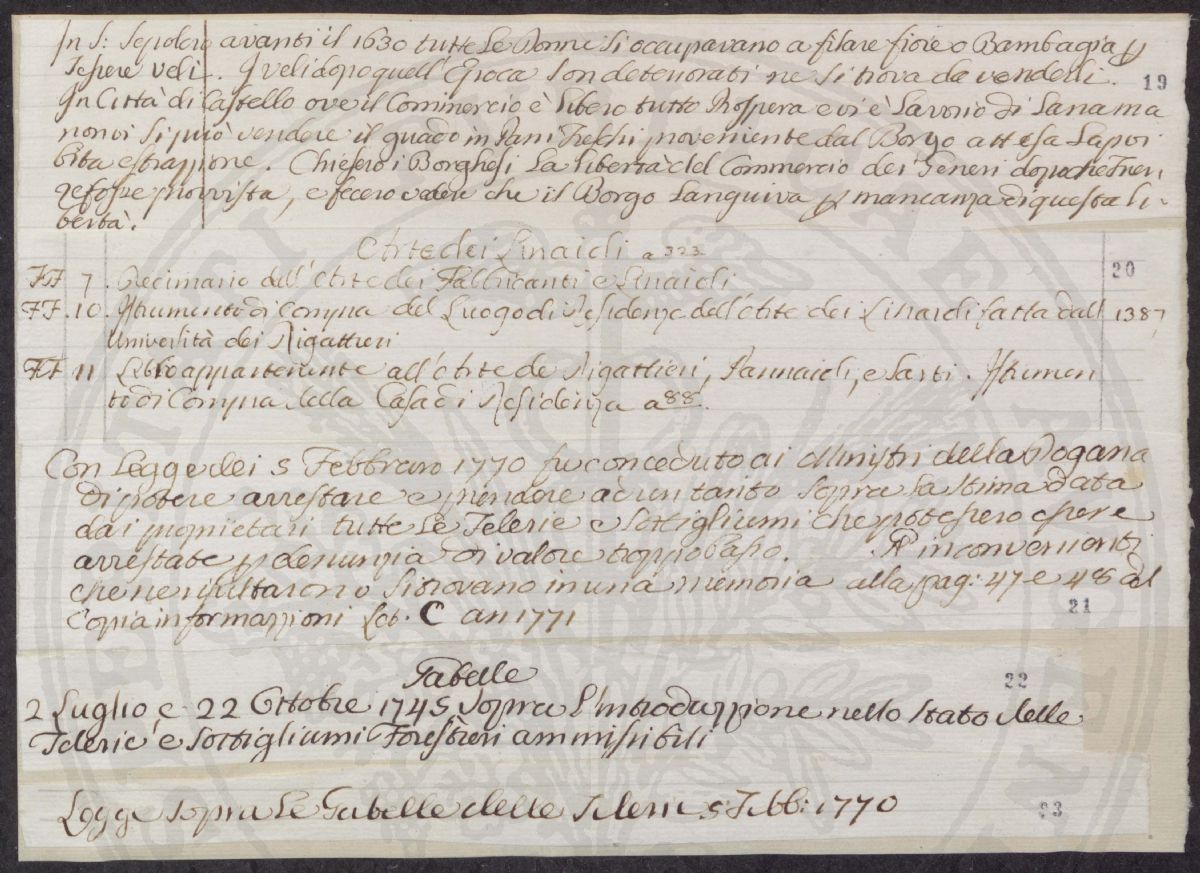 In S: Sepolcro avanti il 1630 tutte le Donne si occupavano a filare fiore o Bambagia p
Tessere veli. I veli dopo quell'Epoca son deteriorati ne si trova da venderli. 19
In Città di Castello ove il Commercio è libero tutto Prospera e vi è Lavorio di Lana ma
non vi si può vendere il guado in Pani Freschi proveniente dal Borgo attesa la proi
bita estrazione. Chiesero i Borghesi la libertà del Commercio dei Generi dopo che Firen
ze fosse provvista, e fecero vedere che il Borgo Languiva p mancanza di questa li-
bertà.
Arte dei Linaioli a 323 20
FF 7. Decimario dell'Arte dei Fabbricanti e Linaioli
FF. 10. Istrumento di Compra del Luogo di Residenza dell'Arte dei Linaioli fatta dall 1387
Università dei Rigattieri
FF 11 Libro appartenente all'Arte de Rigattieri, Pannaioli, e Sarti. Istrumen
to di Compra della Casa di Residenza a 88.
Con Legge dei 5 Febbraro 1770 fu conceduto ai Ministri della Dogana
di potere arrestare e prendere a un tanto sopra la stima data
da i proprietari tutte le Telerie e Sottigliumi che potessero essere
arrestate p denunzia di valore troppo basso. Gl'inconvenienti
che ne risultarono si trovano in una memoria alla pag: 47 e 48 del
Copia informazioni Let. C an 1771 21
Gabelle 22
2 Luglio, e 22 Ottobre 1745 sopra l'introduzzione nello Stato delle
Telerie e Sottigliumi Forestieri ammissibili
Legge sopra le Gabelle delle Telerie 5 Febb: 1770 23